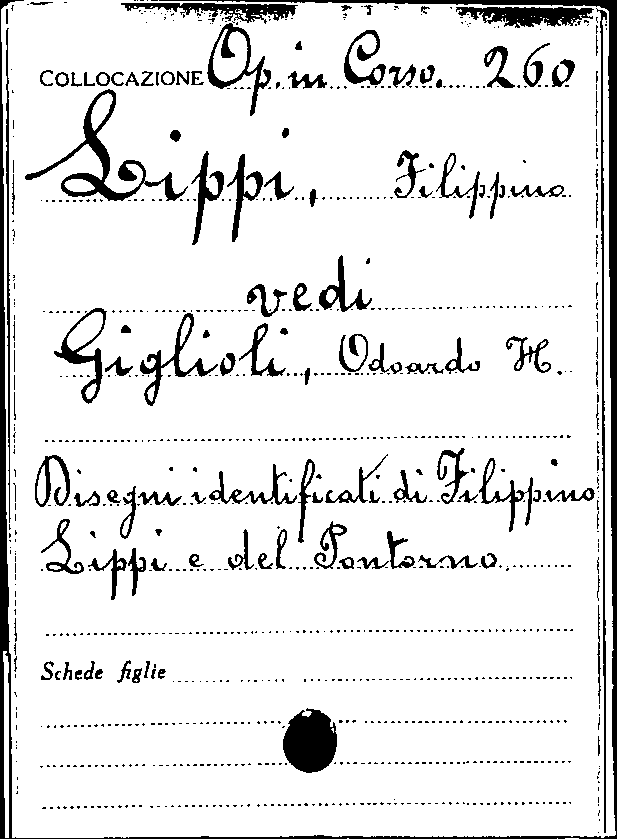 COLLOCAZIONE Op. in Corso. 260
Lippi, Filippino
vedi
Giglioli, Odoardo H.
Disegni identificati di Filippino
Lippi e del Pontorno.
Schede figlie